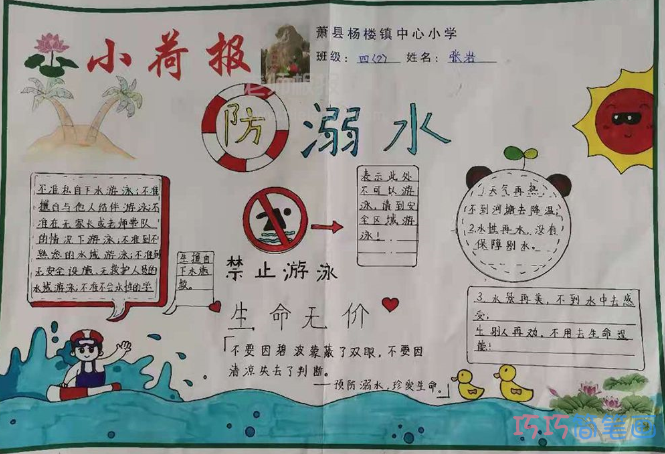 小荷报
萧县杨楼镇中心小学
班级：四(2) 姓名：张岩
防溺水
不准私自下水游泳；不准
擅自与他人结伴游泳；不
准在无家长或老师带队
的情况下游泳；不准到不
熟悉的水域游泳；不准到
无安全设施、无救护人员的
水域游泳；不准不会水性的学
生擅自
下水施
救。
禁止游泳
表示此处
不可以游
泳，请到安
全区域游
泳！
1、天气再热，
不到河塘去降温；
2、水性再大，没有
保障别水。
3、水景再美，不到水中去感
受；
4、别人再劝，不用去生命逞
能！
生命无价
「不要因碧波蒙蔽了双眼，不要因
清凉失去了判断。
——预防溺水，珍爱生命。」
巧巧简笔画